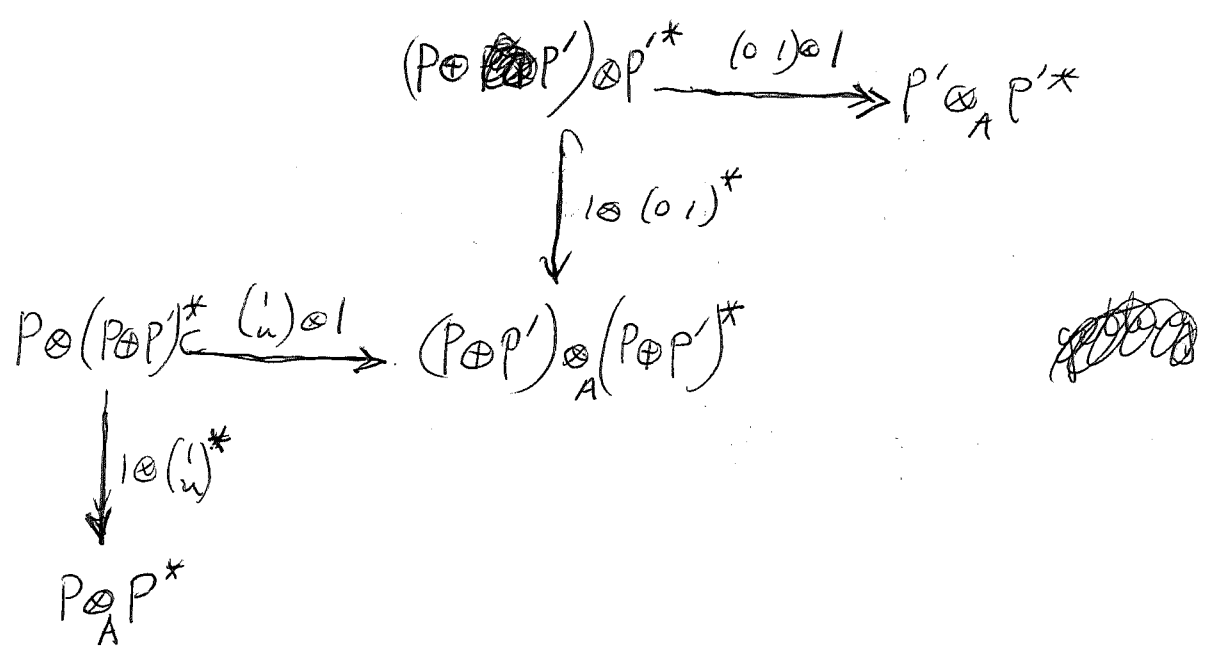 (P⊕P')⊗P'* (0 1)⊗1 P'⊗_A P'*
1⊗(0 1)*
P⊗(P⊕P')* (1 u)⊗1 (P⊕P')⊗_A(P⊕P')*
1⊗(1 u)*
P⊗_A P*